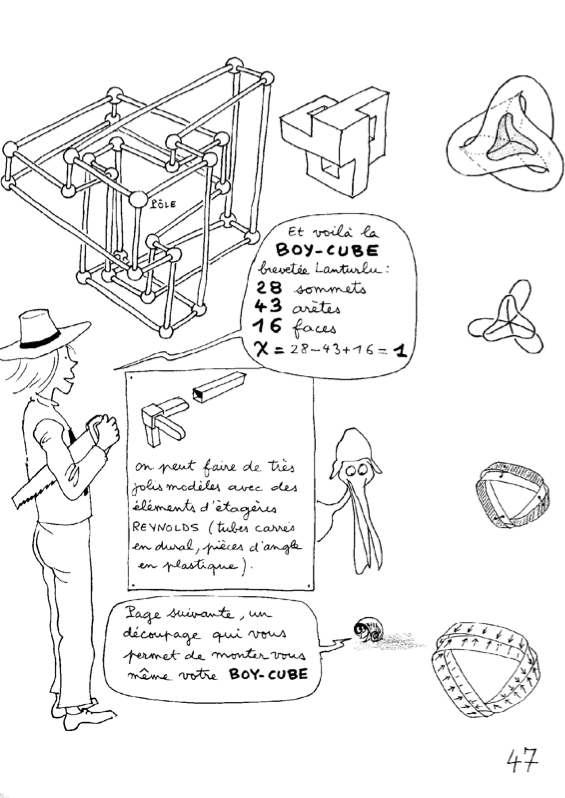 PÔLE
Et voilà la
BOY-CUBE
brevetée Lanturlu :
28 sommets
43 arètes
16 faces
χ = 28-43+16 = 1
on peut faire de très
jolis modèles avec des
éléments d'étagères
REYNOLDS (tubes carrés
en dural, pièces d'angle
en plastique).
Page suivante, un
découpage qui vous
permet de monter vous
même votre BOY-CUBE
47